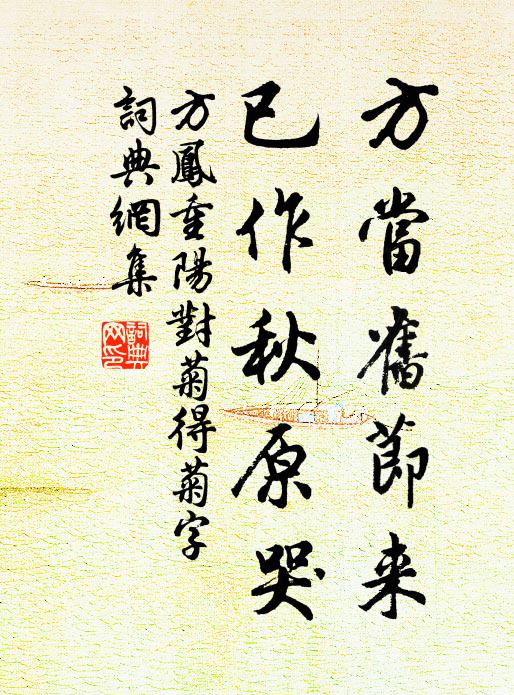 方當舊節来
已作秋原哭
方鳳重陽對菊得菊字
詞典網集
詞典网印